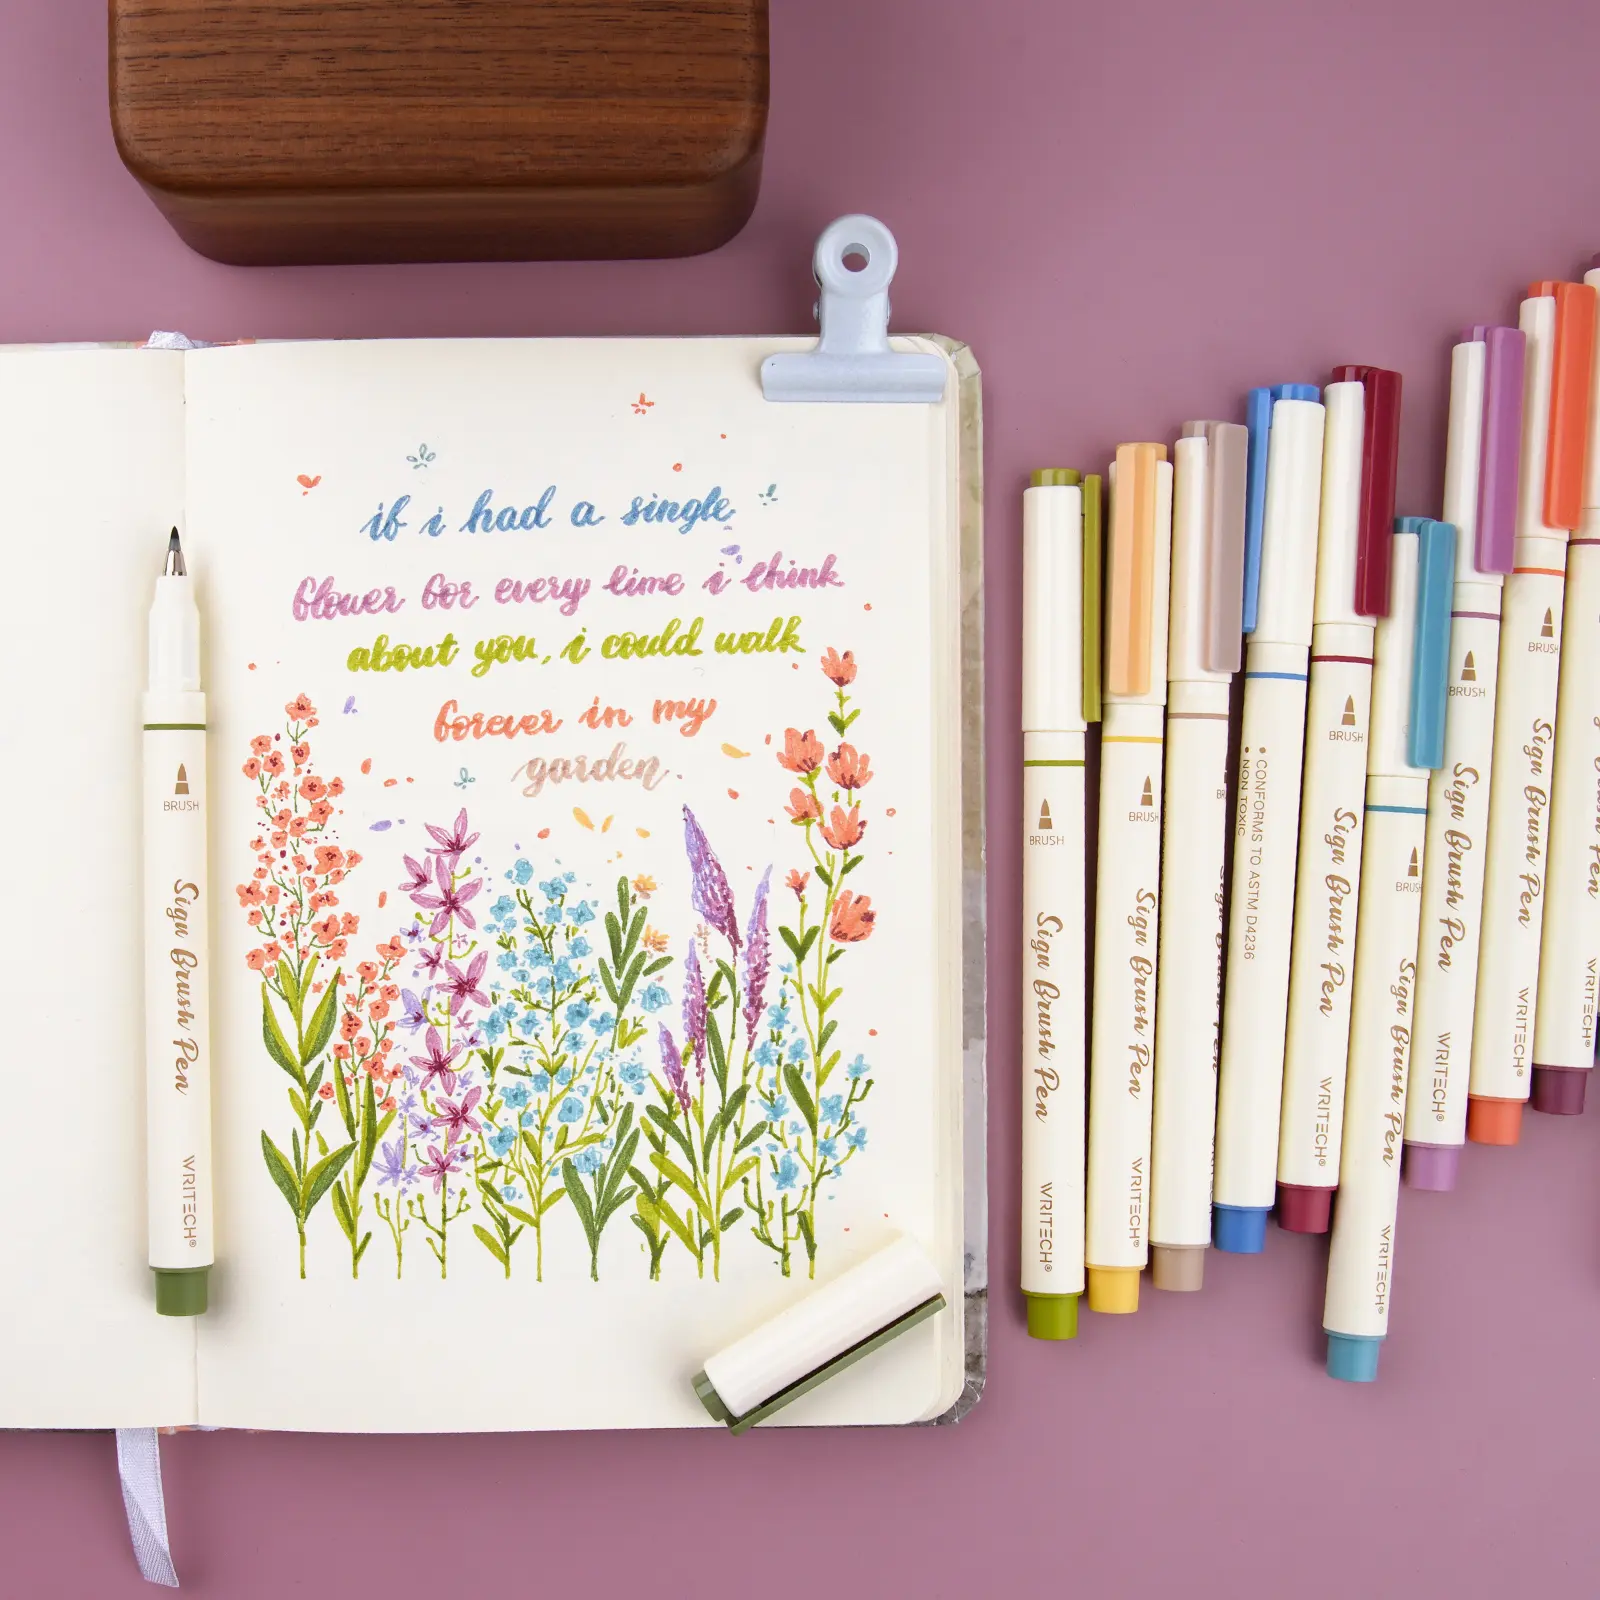 if i had a single
flower for every time i think
about you, i could walk
forever in my
garden.
BRUSH
Sign Brush Pen
WRITECH®
BRUSH
Sign Brush Pen
WRITECH®
BRUSH
Sign Brush Pen
WRITECH®
• CONFORMS TO ASTM D4236
• NON TOXIC
BRUSH
Sign Brush Pen
WRITECH®
BRUSH
Sign Brush Pen
WRITECH®
BRUSH
Sign Brush Pen
WRITECH®
BRUSH
Sign Brush Pen
WRITECH®
WRITECH®